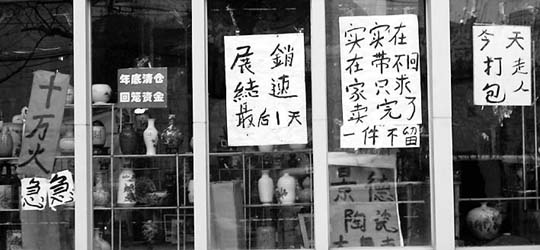 十万火
急急
年底清仓
回笼资金
展銷
結速
最后1天
实实在
在带不回
家只求
卖完了
一件不留
景德
陶瓷
今天
打包
走人